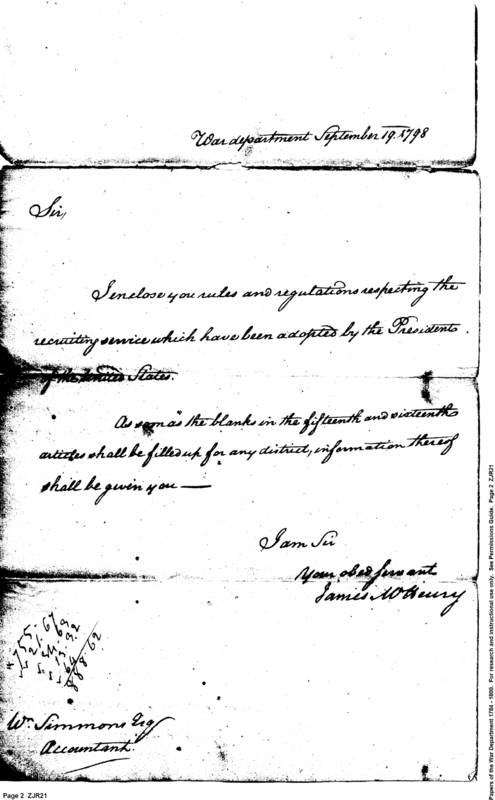 War department September 19. 1798
Sir,
I enclose you rules and regulations respecting the
recruiting service which have been adopted by the President
of the United States.
As soon as the blanks in the fifteenth and sixteenth
articles shall be filled up for any district, information thereof
shall be given you —
I am Sir
Your obed servant
James McHenry
888.62
Wm. Simmons Esq
Accountant.
Page 2 ZJR21
Papers of the War Department 1784 - 1800. For research and instructional use only. See Permissions Guide. Page 2 ZJR21